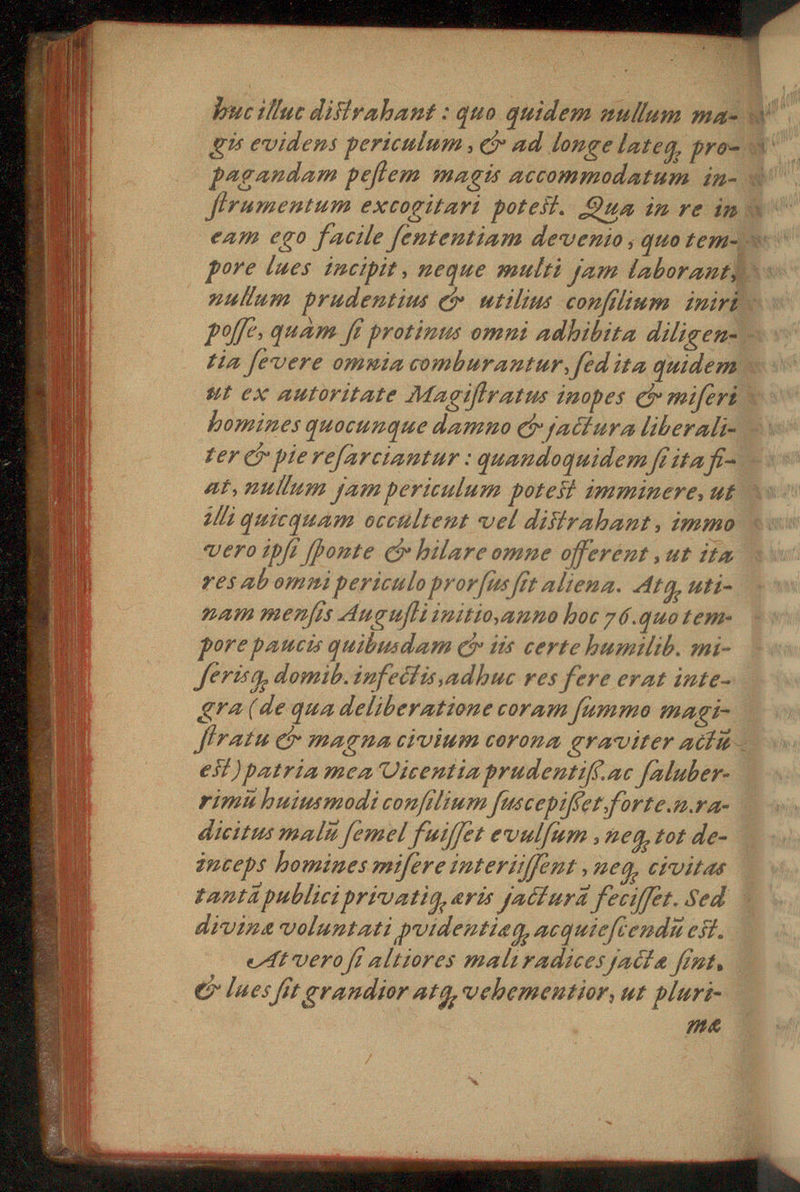 huc illuc distrahant : quo quidem nullum ma-
gis evidens periculum, & ad longe lateq, pro-
pagandam pestem magis accommodatum in-
strumentum excogitari potest. Qua in re in
eam ego facile sententiam devenio, quo tem-
pore lues incipit, neque multi jam laborant,
nullum prudentius & utilius consilium iniri
posse, quàm si protinus omni adhibita diligen-
tia severe omnia comburantur, sed ita quidem
ut ex autoritate Magistratus inopes & miseri
homines quocunque damno & jactura liberali-
ter & pie resarciantur : quandoquidem si ita fi-
at, nullum jam periculum potest imminere, ut
illi quicquam occultent vel distrahant, immo
vero ipsi sponte & hilare omne offerent, ut ita
res ab omni periculo prorsus sit aliena. Atq, uti-
nam mensis Augusti initio, anno hoc 76. quo tem-
pore paucis quibusdam & iis certe humilib. mi-
serisq, domib. infectis, adhuc res fere erat inte-
gra (de qua deliberatione coram summo magi-
stratu & magna civium corona graviter actū
est) patria mea Vicentia prudentiss. ac saluber-
rimū huiusmodi consilium suscepisset, forte.n.ra-
dicitus malū semel fuisset evulsum, neq, tot de-
inceps homines misere interiissent, neq, civitas
tantā publici privatiq, æris jacturā fecisset. Sed
divinæ voluntati pvidentiæq, acquiescendū est.
At vero si altiores mali radices jactæ sint,
& lues sit grandior atq, vehementior, ut pluri-
mæ